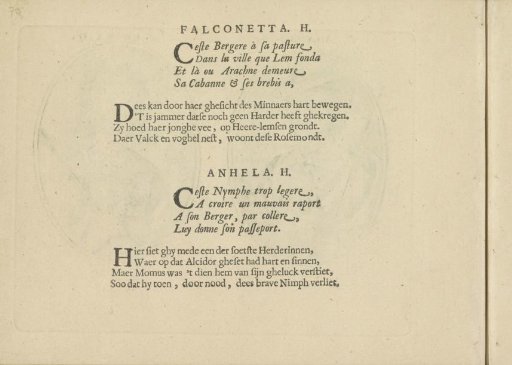 FALCONETTA. H.
Ceſte Bergere à ſa paſture,
Dans la ville que Lem fonda
Et là ou Arachne demeure
Sa Cabanne & ſes brebis a,
Dees kan door haer gheſicht des Minnaers hart bewegen.
'T is jammer datſe noch geen Harder heeft ghekregen.
Zy hoed haer jonghe vee, op Heere-lemſen grondt.
Daer Valck en voghel neſt, woont deſe Roſemondt.
ANHELA. H.
Ceſte Nymphe trop legere,
A croire un mauvais raport
A ſon Berger, par collere,
Luy donne ſon paſſeport.
Hier ſiet ghy mede een der ſoetſte Herderinnen,
Waer op dat Alcidor gheſet had hart en ſinnen,
Maer Momus was 't dien hem van ſijn gheluck verſtiet,
Soo dat hy toen, door nood, dees brave Nimph verliet.